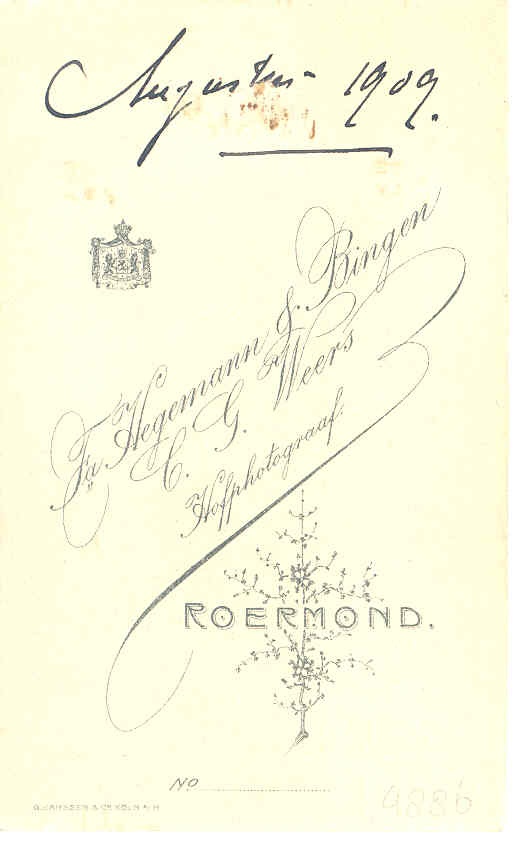 Augustus 1909.
Fa Hegemann & Bingen
C. G. Weers
Hofphotograaf.
ROERMOND.
No
G. JANSSEN & Co KÖLN A/R
9886